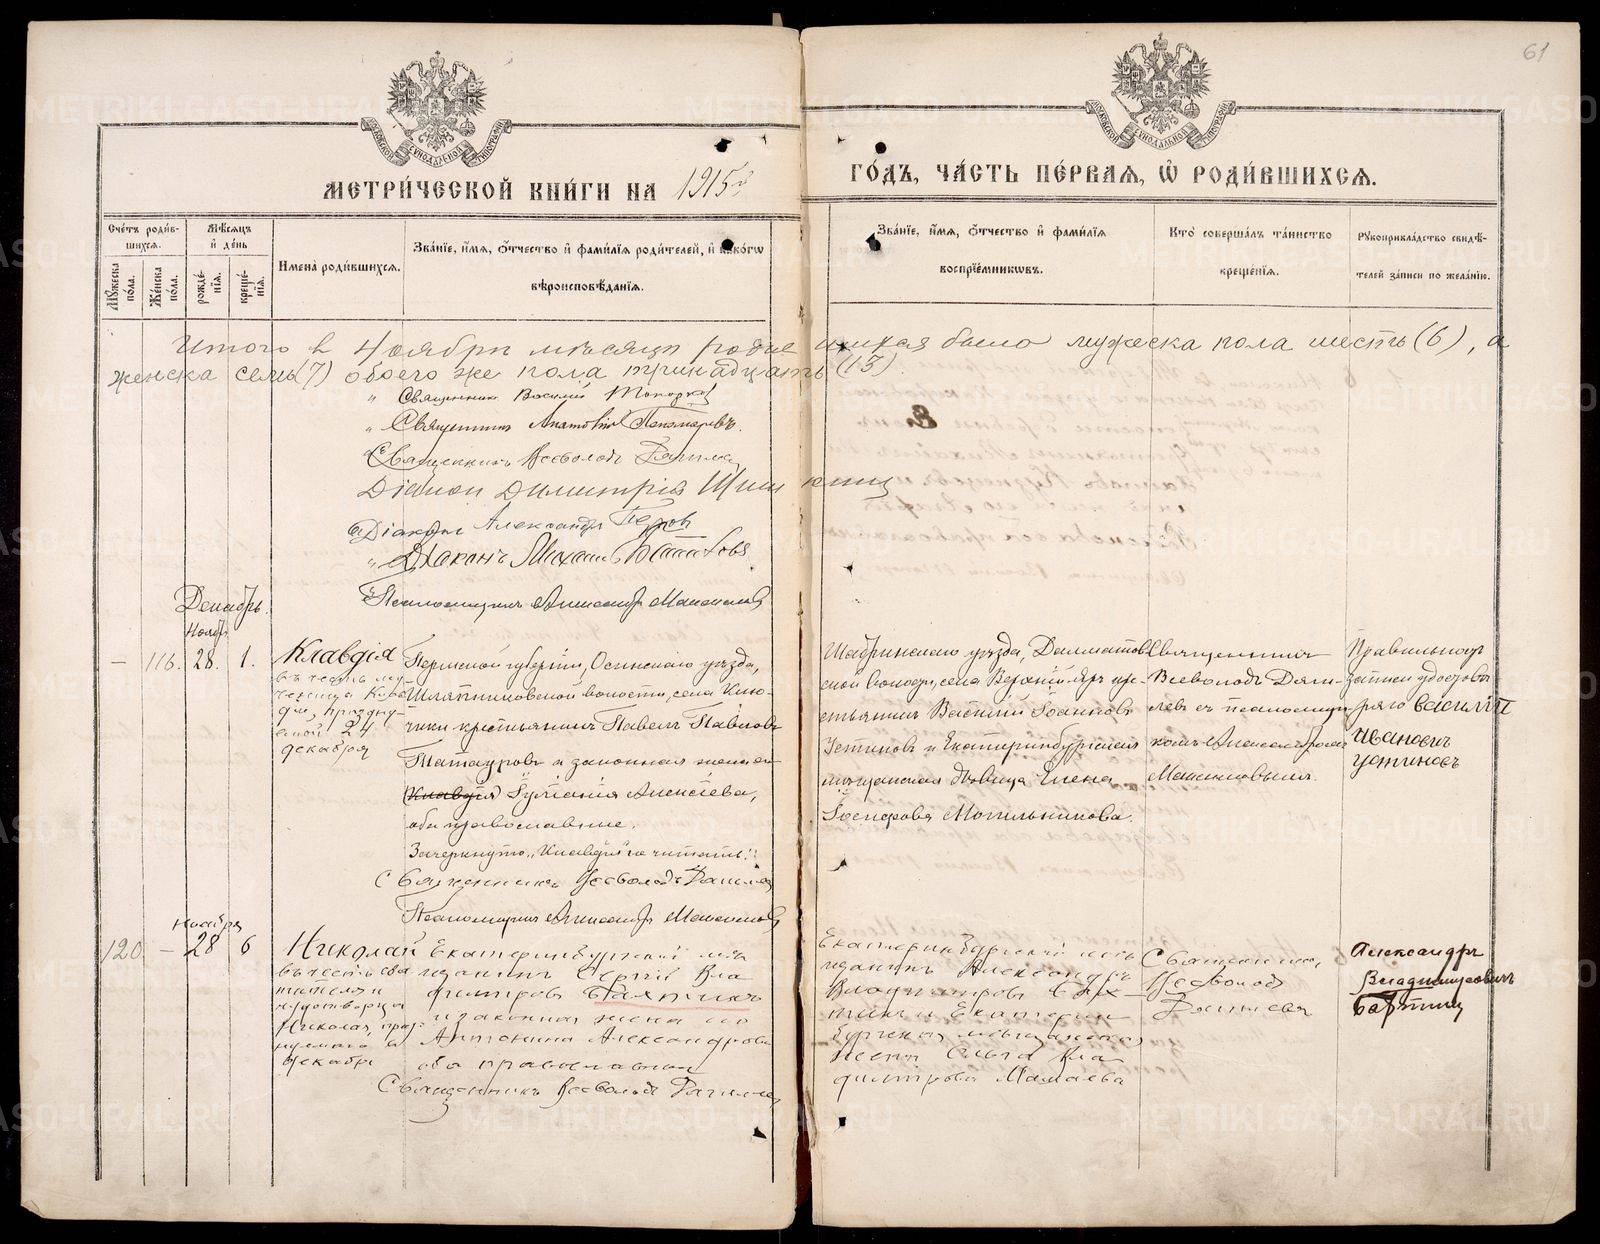 61
МЕТРИ́ЧЕСКОЙ КНИ́ГИ НА 1915й ГО́ДЪ, ЧА́СТЬ ПЕ́РВАЯ, Ѡ РОДИ́ВШИХСЯ.
Сче́тъ роди́вшихся.
Мѣ́сяцъ и҆ де́нь
Мꙋ́жеска по́ла.
Же́нска по́ла.
рожде́нїя.
креще́нїя.
И҆мена̀ роди́вшихся.
Зва́нїе, и҆́мя, ѻ҆́тчество и҆ фами́лїя роди́телей, и҆ како́гѡ
вѣроисповѣ́данїя.
Зва́нїе, и҆́мя, ѻ҆́тчество и҆ фами́лїя
воспрїе́мникѡвъ.
Кто̀ соверша́лъ та́инство
креще́нїя.
Рꙋкоприкла́дство свидѣ́-
телей за́писи по жела́нїю.
Итого в Ноябрѣ мѣсяцѣ родившихся было мужеска пола шесть (6), а
женска семь (7) обоего же пола тринадцать (13).
Священник Василий Топорков
Священникъ Анатолій Пономаревъ.
Священникъ Всеволодъ
Діакон Димитрій Шишкинъ
Діаконъ Александръ
Діаконъ Михаилъ
Псаломщикъ Александръ
Декабрь.
Ноябр
— 116. 28. 1.
Клавдія
въ честь му-
ченицы Клав-
діи, праздну-
емой 24
декабря
Пермской губерніи, Осинскаго уѣзда,
волости, села Клю-
чики крестьянинъ Павелъ Павловъ
Татауровъ и законная жена его
Клавдія Алексіева,
оба православные.
Зачеркнуто „Клавдія" не читать.
Священникъ Всеволодъ
Псаломщикъ Александръ
Шадринскаго уѣзда, Далматов-
ской волости, села Верхній Яръ кре-
стьянинъ Василій Іоанновъ
Устиновъ и Екатеринбургская
мѣщанская дѣвица Елена
Іосифова Мотильникова.
Священникъ
Всеволодъ
съ псаломщи-
комъ Александромъ
Правильность
записи удостовѣ-
ряю Василій
Ивановичъ
Устиновъ
Ноября
120 — 28 6
Николай
въ честь свя
тителя и
чудотворца
Николая, праз-
нуемаго 6
декабря
Екатеринбургскій мѣ
щанинъ Сергій Вла
диміровъ Бахтинъ
и законная жена его
Антонина Александрова
оба православные
Священникъ Всеволодъ
Екатеринбургскій мѣ
щанинъ Александръ
Владиміровъ Бах-
тинъ и Екатерин
бургская мѣщанская
Ольга Вла
димірова Мамаева
Священникъ
Всеволодъ
Александръ
Владимировичъ
Бахтинъ
METRIKI.GASO-URAL.RU